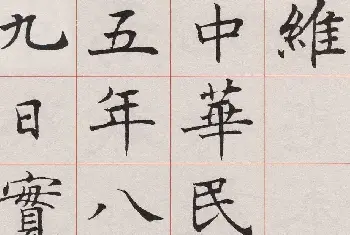 維
中華民
五年八
九日實